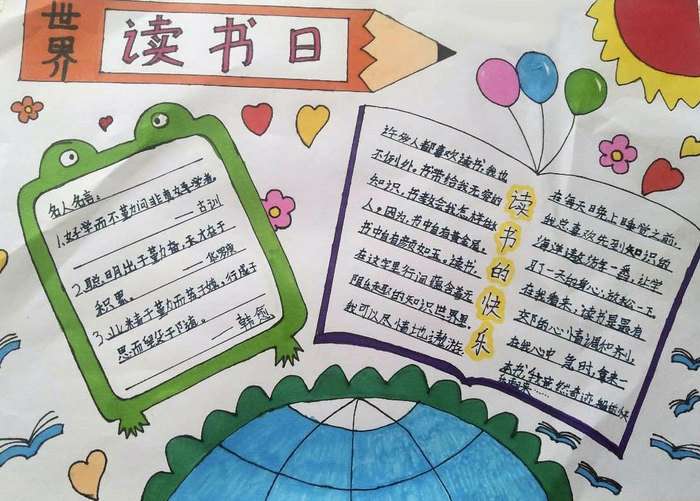 世界
读书日
名人名言。
1.好学而不勤问非真好学者。
——古训
2.聪明出于勤奋，天才在于
积累。——华罗庚
3.业精于勤而荒于嬉，行成于
思而毁于随。——韩愈
读书的快乐
许多人都喜欢读书，我也
不例外。书带给我无穷的
知识，书教会我怎样做
人。因为，书中自有黄金屋，
书中自有颜如玉。读书，
在这字里行间蕴含着无
知识世界里，
我可以尽情地遨游。
在每天晚上睡觉之前，
我总喜欢先到知识的
海洋遨游一番，让学
了一天的放松一下。
在我看来，读书是最有